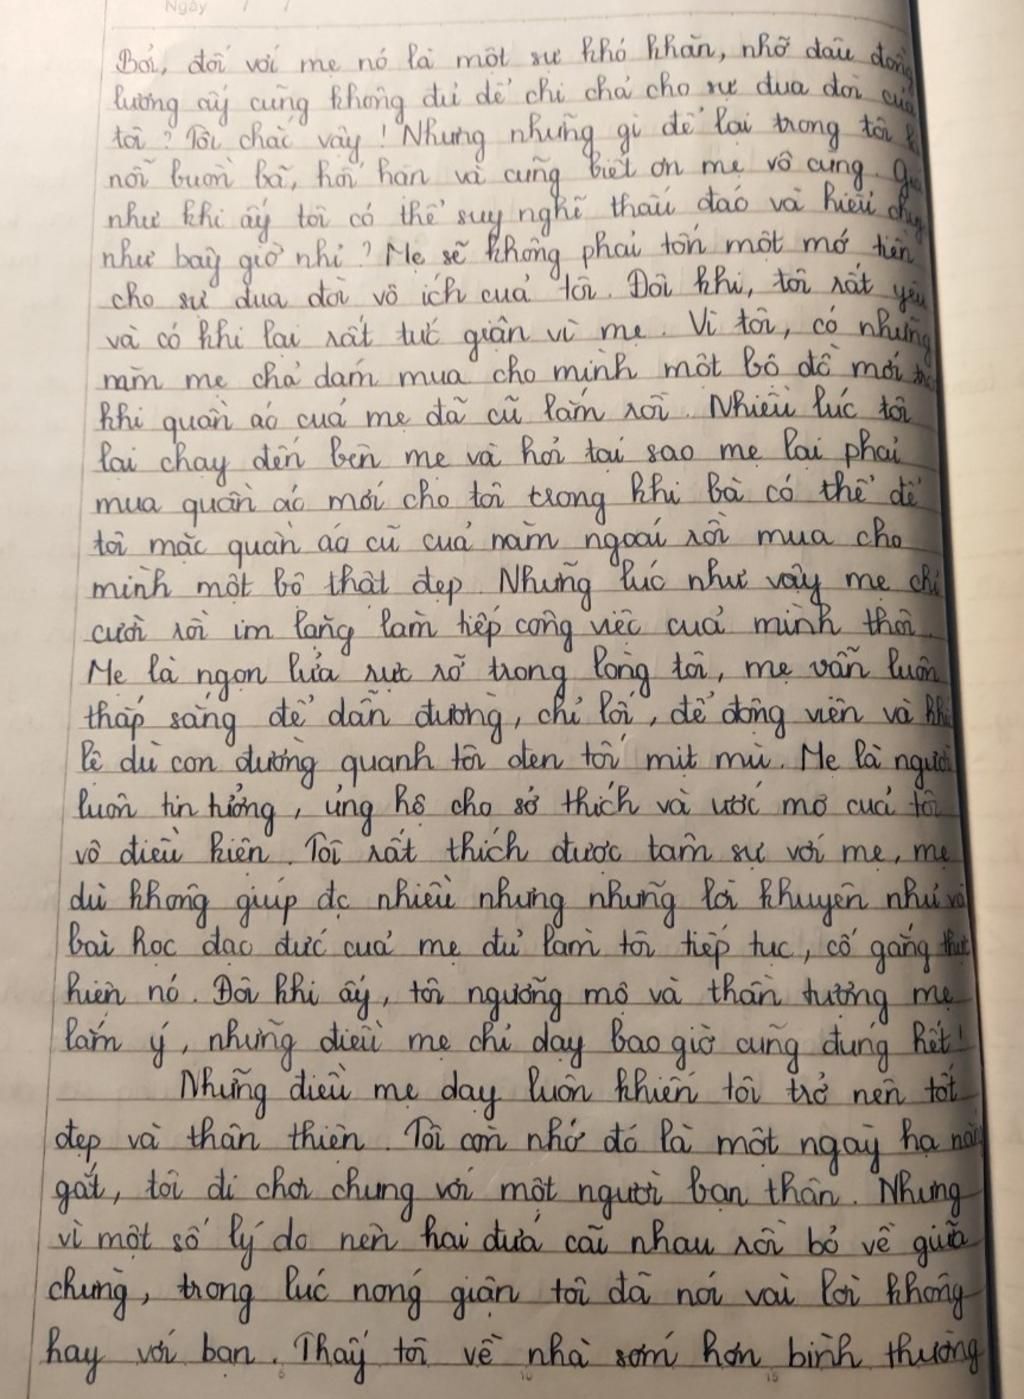 Ngày / /
Bởi, đối với mẹ nó là một sự khó khăn, nhỡ đâu đồng
lương ấy cũng không đủ để chi chả cho sự đua đòi của
tôi? Tôi chắc vậy! Nhưng những gì để lại trong tôi
nỗi buồn bã, hối hận và cũng biết ơn mẹ vô cùng. Giá
như khi ấy tôi có thể suy nghĩ thấu đáo và hiểu
như bây giờ nhỉ? Mẹ sẽ không phải tốn một mớ tiền
cho sự đua đòi vô ích của tôi. Đôi khi, tôi rất yêu
và có khi lại rất tức giận vì mẹ. Vì tôi, có những
năm mẹ chả dám mua cho mình một bộ đồ mới
khi quần áo của mẹ đã cũ lắm rồi. Nhiều lúc tôi
lại chạy đến bên mẹ và hỏi tại sao mẹ lại phải
mua quần áo mới cho tôi trong khi bà có thể để
tôi mặc quần áo cũ của năm ngoái rồi mua cho
mình một bộ thật đẹp. Những lúc như vậy mẹ chỉ
cười rồi im lặng làm tiếp công việc của mình thôi.
Mẹ là ngọn lửa rực rỡ trong lòng tôi, mẹ vẫn luôn
thắp sáng để dẫn đường, chỉ lối, để động viên và khích
lệ dù con đường quanh tôi đen tối mịt mù. Mẹ là người
luôn tin tưởng, ủng hộ cho sở thích và ước mơ của tôi
vô điều kiện. Tôi rất thích được tâm sự với mẹ, mẹ
dù không giúp đc nhiều nhưng những lời khuyên như
bài học đạo đức của mẹ đủ làm tôi tiếp tục, cố gắng thực
hiện nó. Đôi khi ấy, tôi ngưỡng mộ và thần tượng mẹ
lắm ý, những điều mẹ chỉ dạy bao giờ cũng đúng hết!
Những điều mẹ dạy luôn khiến tôi trở nên tốt
đẹp và thân thiện. Tôi còn nhớ đó là một ngày hạ nắng
gắt, tôi đi chơi chung với một người bạn thân. Nhưng
vì một số lý do nên hai đứa cãi nhau rồi bỏ về giữa
chừng, trong lúc nóng giận tôi đã nói vài lời không
hay với bạn. Thấy tôi về nhà sớm hơn bình thường